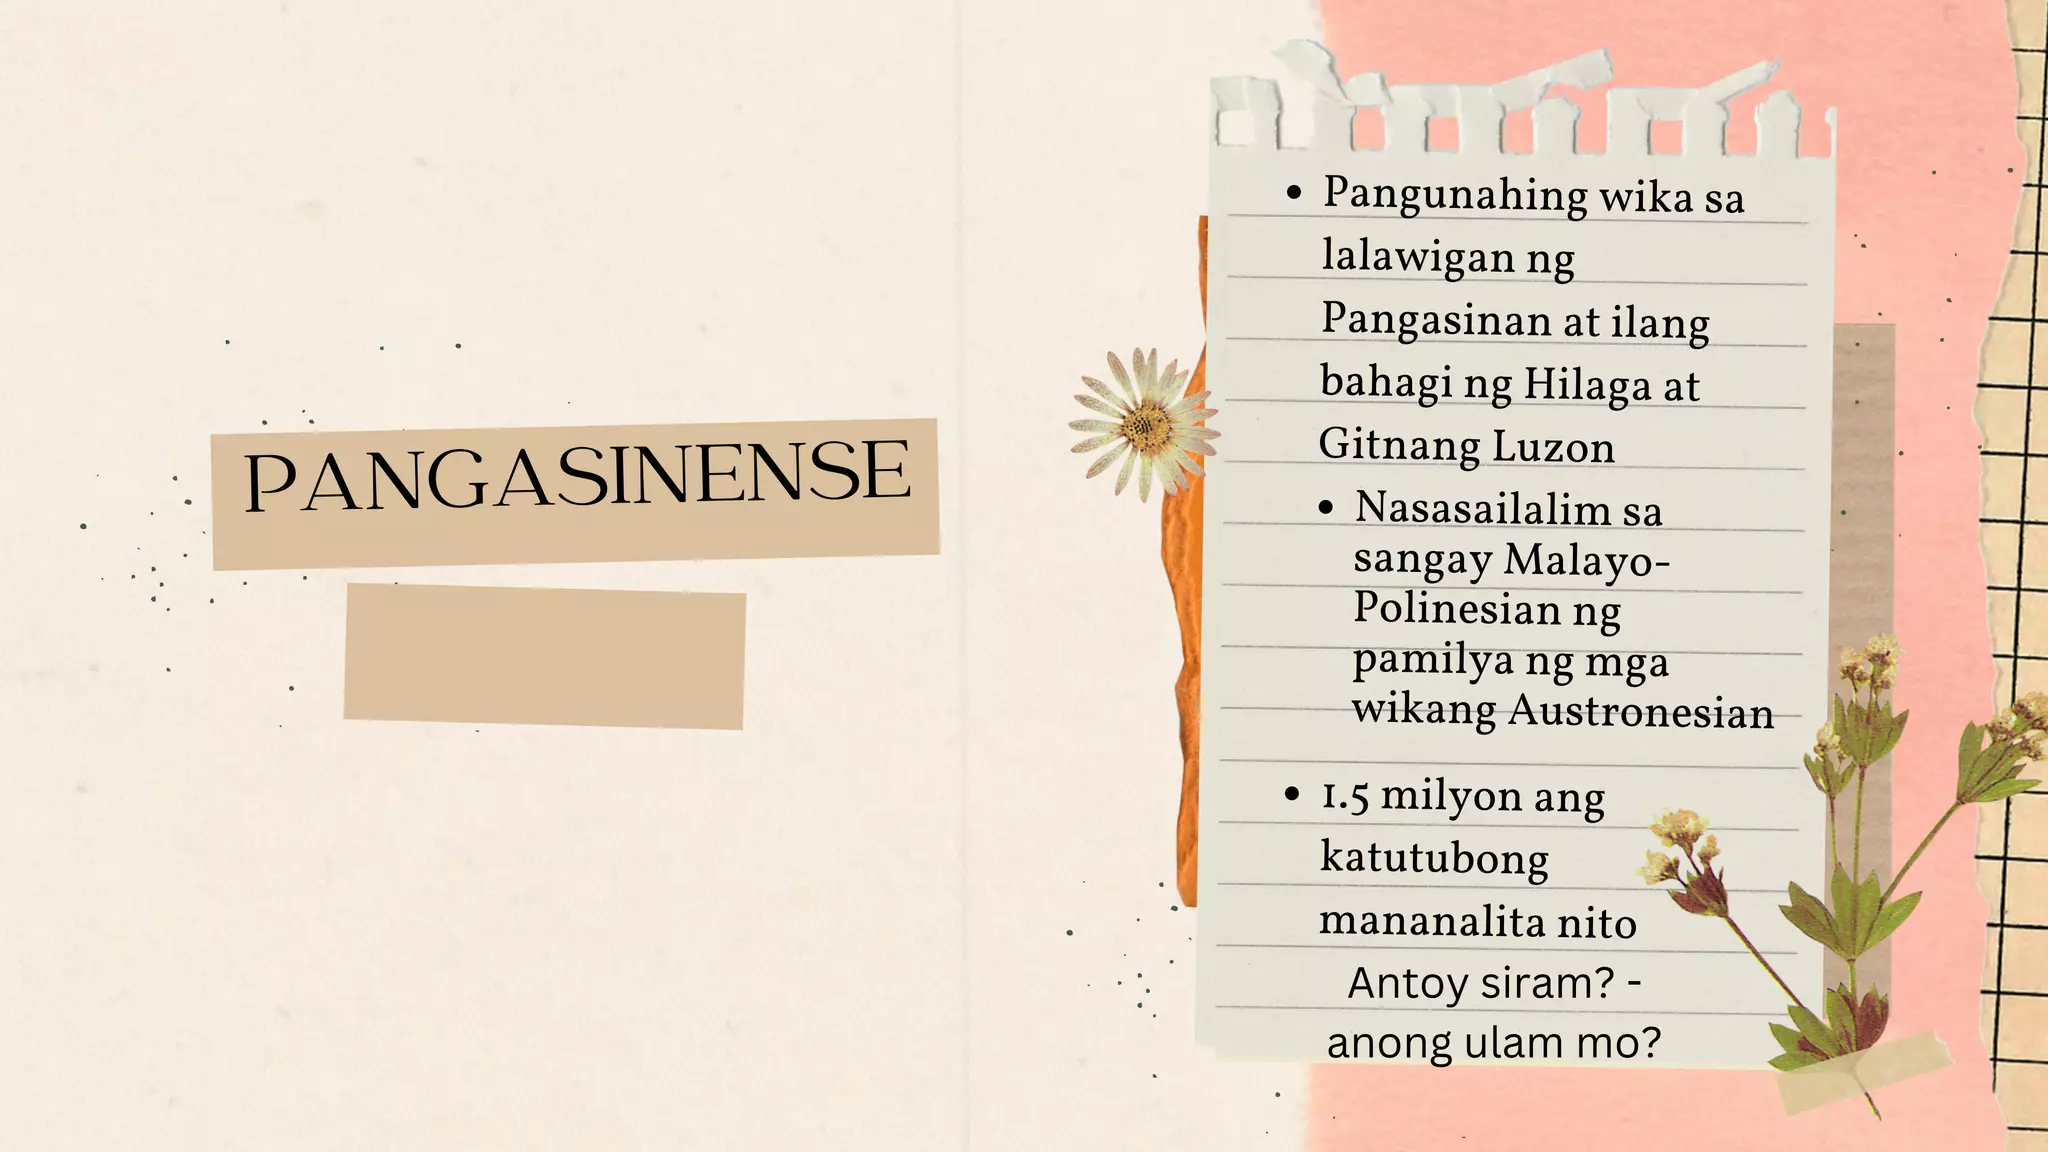 PANGASINENSE
• Pangunahing wika sa
lalawigan ng
Pangasinan at ilang
bahagi ng Hilaga at
Gitnang Luzon
• Nasasailalim sa
sangay Malayo-
Polinesian ng
pamilya ng mga
wikang Austronesian
• 1.5 milyon ang
katutubong
mananalita nito
Antoy siram? -
anong ulam mo?